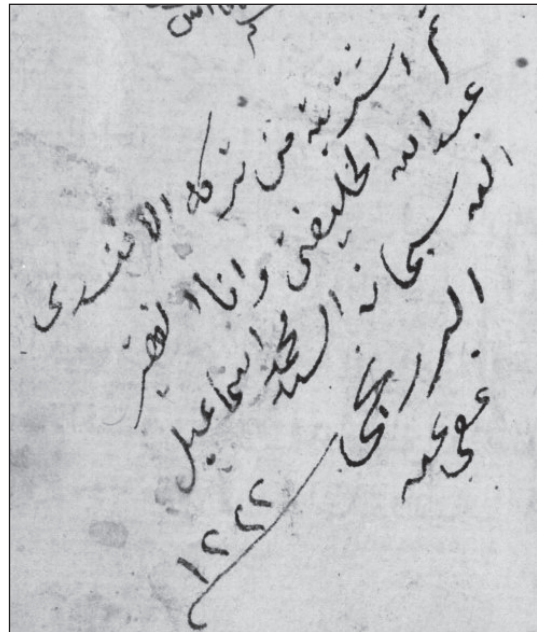 ثم اشتريته من تركة الافندي
عبد الله الخليفتي وانا الفقير
الى الله سبحانه السيد محمد اسماعيل
البرزنجي
عفي عنه
١٢٢٢